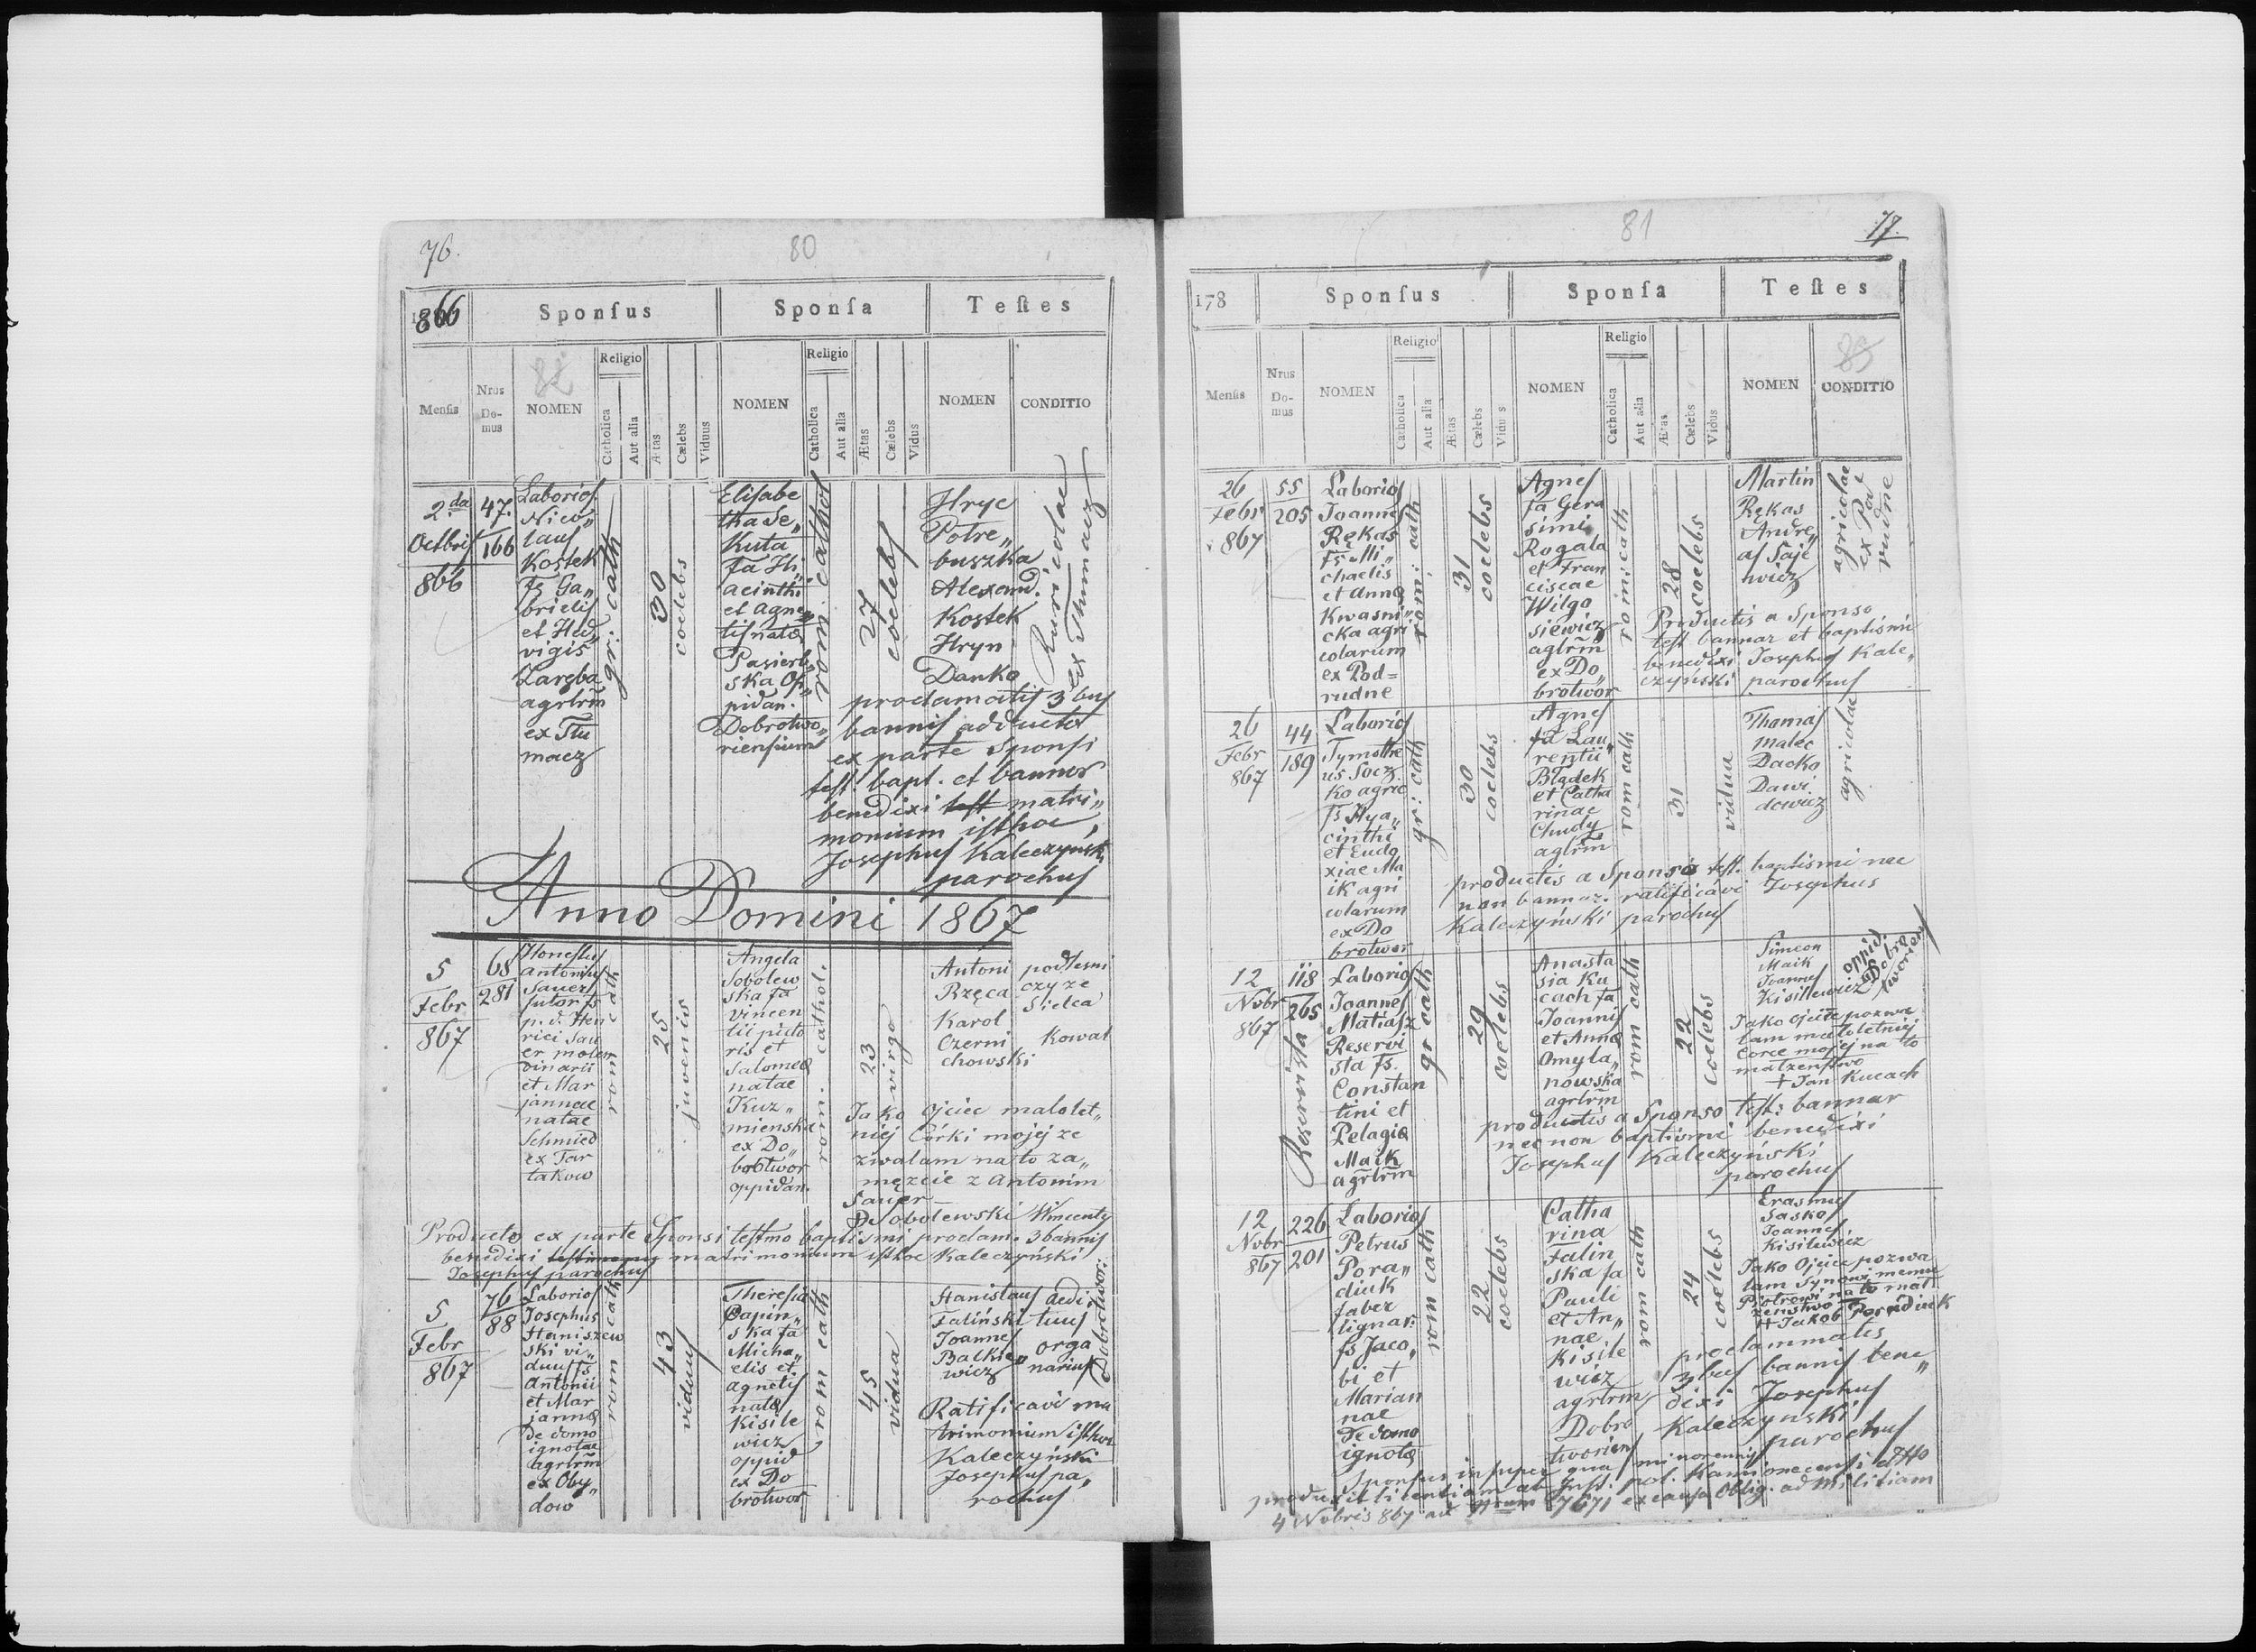 76.
80
1866
Sponſus
Sponſa
Teſtes
Menſis
Nrus Do-mus
82
NOMEN
Religio
Catholica
Aut alia
Ætas
Cælebs
Viduus
NOMEN
Religio
Catholica
Aut alia
Ætas
Cælebs
Vidus
NOMEN
CONDITIO
2da
Octbris
866
47.
166
Laborios
Nico„
laus
Kostek
fs Ga„
brielis
et Hed„
vigis
Zaręba
agrlrm
ex Tłu
macz
gr: cath
30
coelebs
Elisabe
tha Se„
Kuta
fa Hi„
acinthi
et Agne„
tis natae
Pasierb„
ska Op„
pidan.
Dobrotwo„
riensium
rom: cathol
27
coelebs
Hryc
Potre„
buszka
Alexand.
Kostek
Hryn
Danko
Ruricolae
ex Tłumacz
proclamatis 3bus
bannis adductos
ex parte Sponsi
test. bapt. et bannor
benedixi test matri„
monium isthoc,
Josephus Kaleczyński
parochus
Anno Domini 1867
5
Febr
867
68
281
Honestus
Antonius
Sauer
sutor fs
p. d. Hen
rici Sau
er molen
dinarii
et Mar
jannae
natae
Schmied
ex Tar
takow
rom cath
25
juvenis
Angela
Sobolew
ska fa
Vincen
tii picto
ris et
Salomeae
natae
Kuz„
mienska
ex Do„
brotwor
oppidan.
rom. cathol.
23
virgo
Antoni
Rzęca
Karol
Czerni
chowski
podlesni
czy ze
Sielca
Kowal
Jako ojciec malolet„
niej Córki mojej ze
zwalam na to za„
mężcie z Antonim
Sauer
Sobolewski Wincenty
Producto ex parte Sponsi testmo baptismi proclam. 3 bannis
benedixi testimony matrimonium isthoc Kaleczyński
Josephus parochus
5
Febr
867
76
88
Laborios
Josephus
Staniszew
ski vi„
duus fs
Antonii
et Mar
jannae
de domo
ignotae
agrlrm
ex Oby„
dow
rom cath
43
viduus
Theresia
Capin„
ska fa
Micha„
elis et
Agnetis
natae
Kisile
wicz
oppid
ex Do
brotwor
rom cath
45
vidua
Stanislaus
Faliński
Joannes
Balkie„
wicz
Aedi
tuus
orga
narius
Dobrotwor:
Ratificavi ma
trimonium isthoc
Kaleczyński
Josephus pa„
rochus
81
77.
178
Sponſus
Sponſa
Teſtes
Menſis
Nrus Do-mus
NOMEN
Religio
Catholica
Aut alia
Ætas
Cælebs
Vidus
NOMEN
Religio
Catholica
Aut alia
Ætas
Cælebs
Vidus
NOMEN
83
CONDITIO
26
Febr
867
55
205
Laborios
Joannes
Rękas
fs Mi„
chaelis
et Annae
Kwasni„
cka agri
colarum
ex Pod=
rudne
rom: cath
31
coelebs
Agnes
fa Gera
simi
Rogala
et Fran
ciscae
Wilgo
siewicz
agrlrm
ex Do„
brotwor
rom: cath
28
coelebs
Martin
Rękas
Andre„
as Saje
wicz
agricolae
ex Pod
rudne
Productis a Sponso
test bannar et baptismi
benedixi Josephus Kale„
czyński parochus
26
Febr
867
44
189
Laborios
Tymothe
us Socz
ko agric
fs Hya„
cinthi
et Eudo
xiae Ma
ik agri
colarum
ex Do
brotwor
gr: cath
30
coelebs
Agnes
fa Lau„
rentii
Błądek
et Catha
rinae
Chudy
agrlrm
rom cath
31
vidua
Thamas
Malec
Dacko
Dawi
dowicz
agricolae
productis a Sponso test. baptismi nec
non bannar. ratificavi Josephus
Kaleczyński parochus
12
Nvbr
867
118
265
Reservista
Laborios
Joannes
Matiasz
Reservi
sta fs.
Constan
tini et
Pelagiae
Maik
agrlrm
gr cath
29
coelebs
Anasta
sia Ku
cach fa
Joannis
et Annae
Omyla„
nowska
agrlrm
rom cath
22
coelebs
Simeon
Maik
Joannes
Kisilewicz
oppid.
Dobro
tworien
Jako Ojciec pozwa
lam maloletniej
Corce mojej na to
małżeństwo
+ Jan Kucach
productis a Sponso test: bannar
nec non baptismi benedixi
Josephus Kaleczyński
parochus
12
Nvbr
867
226
201
Laborios
Petrus
Pora„
diuk
faber
lignar:
fs Jaco„
bi et
Marian
nae
de domo
ignotae
rom cath
22
coelebs
Catha
rina
Falin
ska fa
Pauli
et An„
nae
Kisile
wicz
agrlrm
Dobro
tworien
rom cath
24
coelebs
Erasmus
Sasko
Joannes
Kisilewicz
Jako Ojciec pozwa
lam Synowi memu
Piotrowi na to mał
żenstwo
+ Jakob Poradiuk
proclammatis
3bus bannis bene„
dixi Josephus
Kaleczynski
parochus
Sponsus insuper qua minorennis
produxit licentiam ab Inst. pol. Kamionecensi ddto
4 Nvbris 867 ad Nrum 7671 ex causa Oblig. ad Militiam